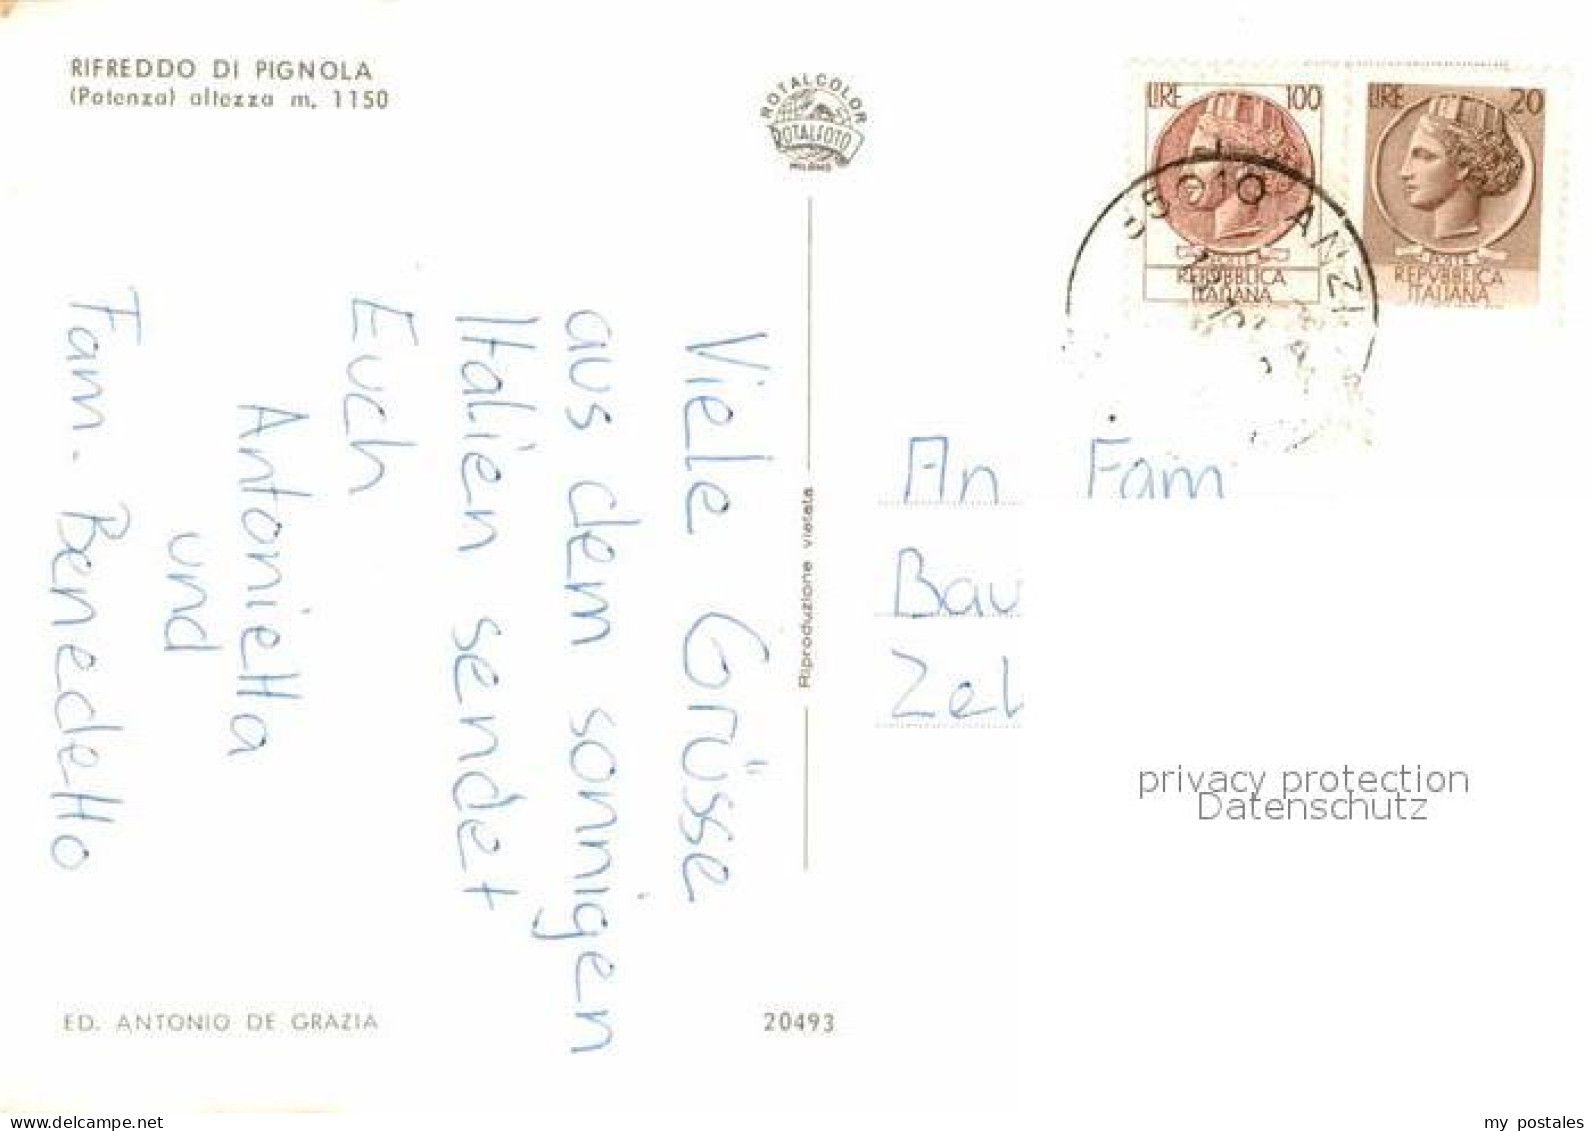 RIFREDDO DI PIGNOLA
(Potenza) altezza m. 1150
ROTALCOLOR
ROTALFOTO
MILANO
LIRE 100
POSTE
REPVBBLICA
ITALIANA
LIRE 20
POSTE
REPVBBLICA
ITALIANA
85010 ANZI
Viele Grüsse
aus dem sonnigen
Italien sendet
Euch
Antoniella
und
Fam. Benedello
Riproduzione vietata
An Fam
Bau
Zel
privacy protection
Datenschutz
ED. ANTONIO DE GRAZIA
20493
www.delcampe.net
my_postales